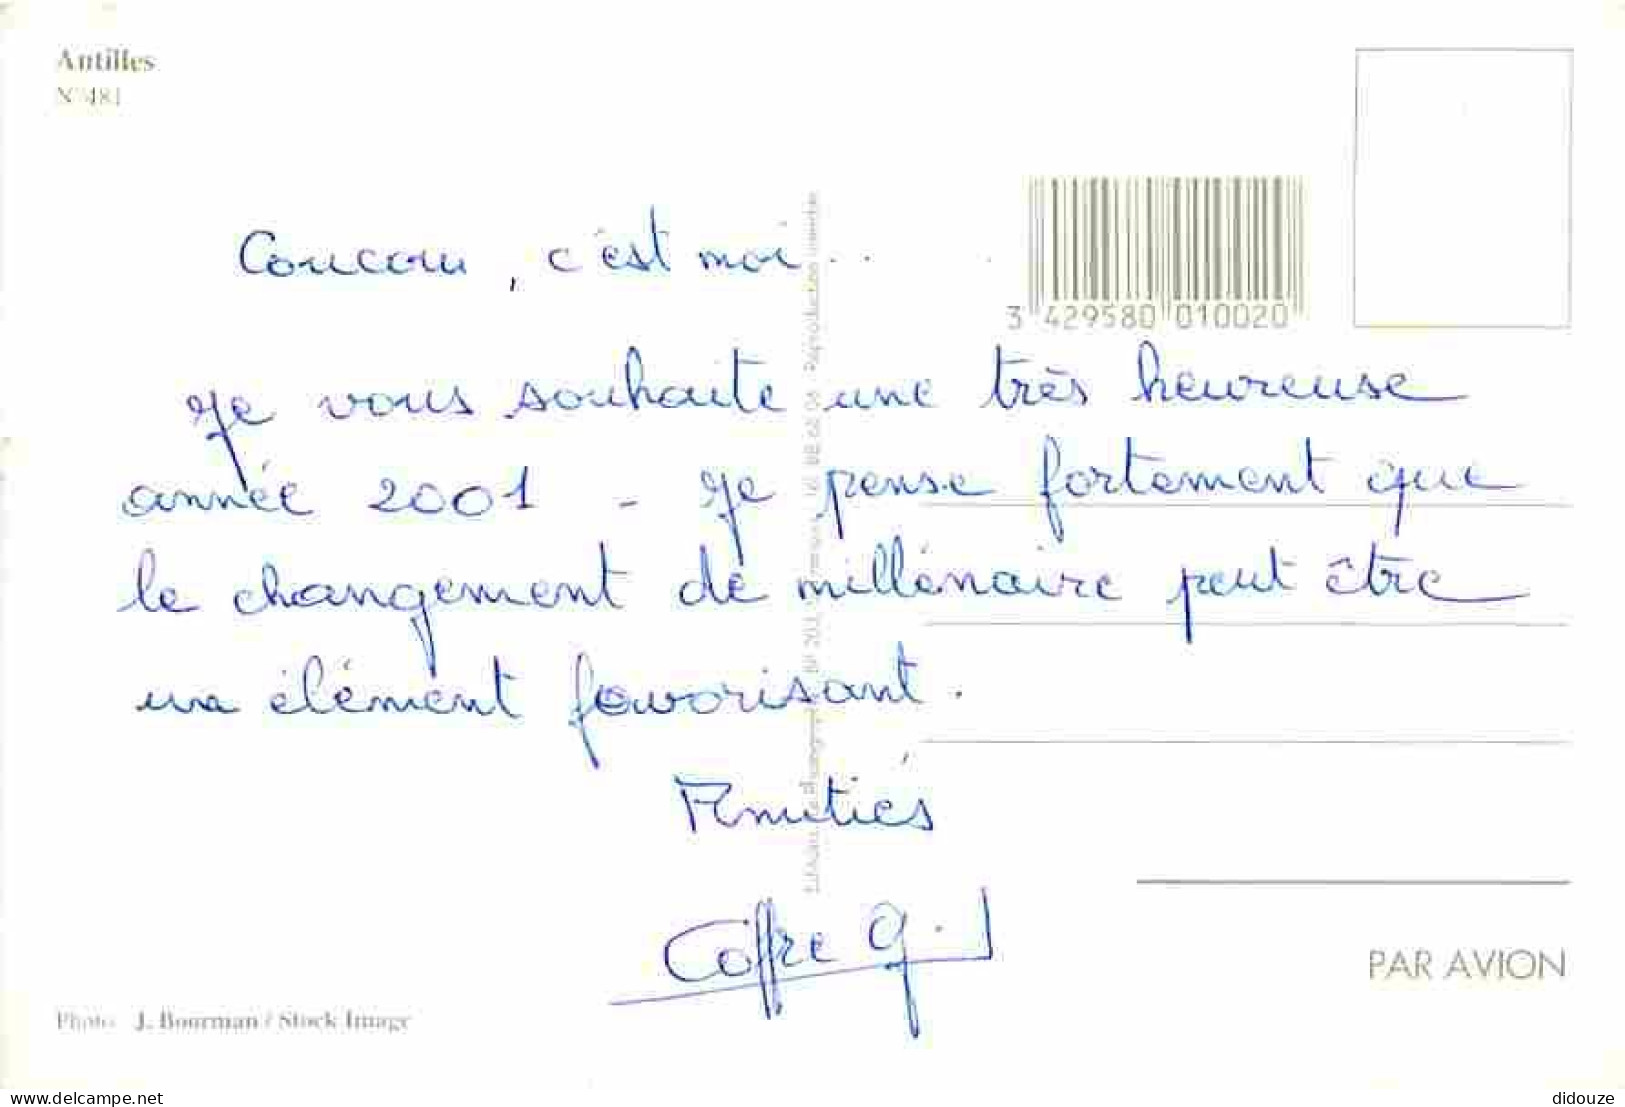 Antilles
N° 481
3 429580 010020
Coucou, c'est moi...
Je vous souhaite une très heureuse
année 2001 - Je pense fortement que
le changement de millénaire peut être
un élément favorisant.
Amitiés
Coffre G.
PAR AVION
Photo J. Bourman / Stock Image
Reproduction interdite
www.delcampe.net
didouze